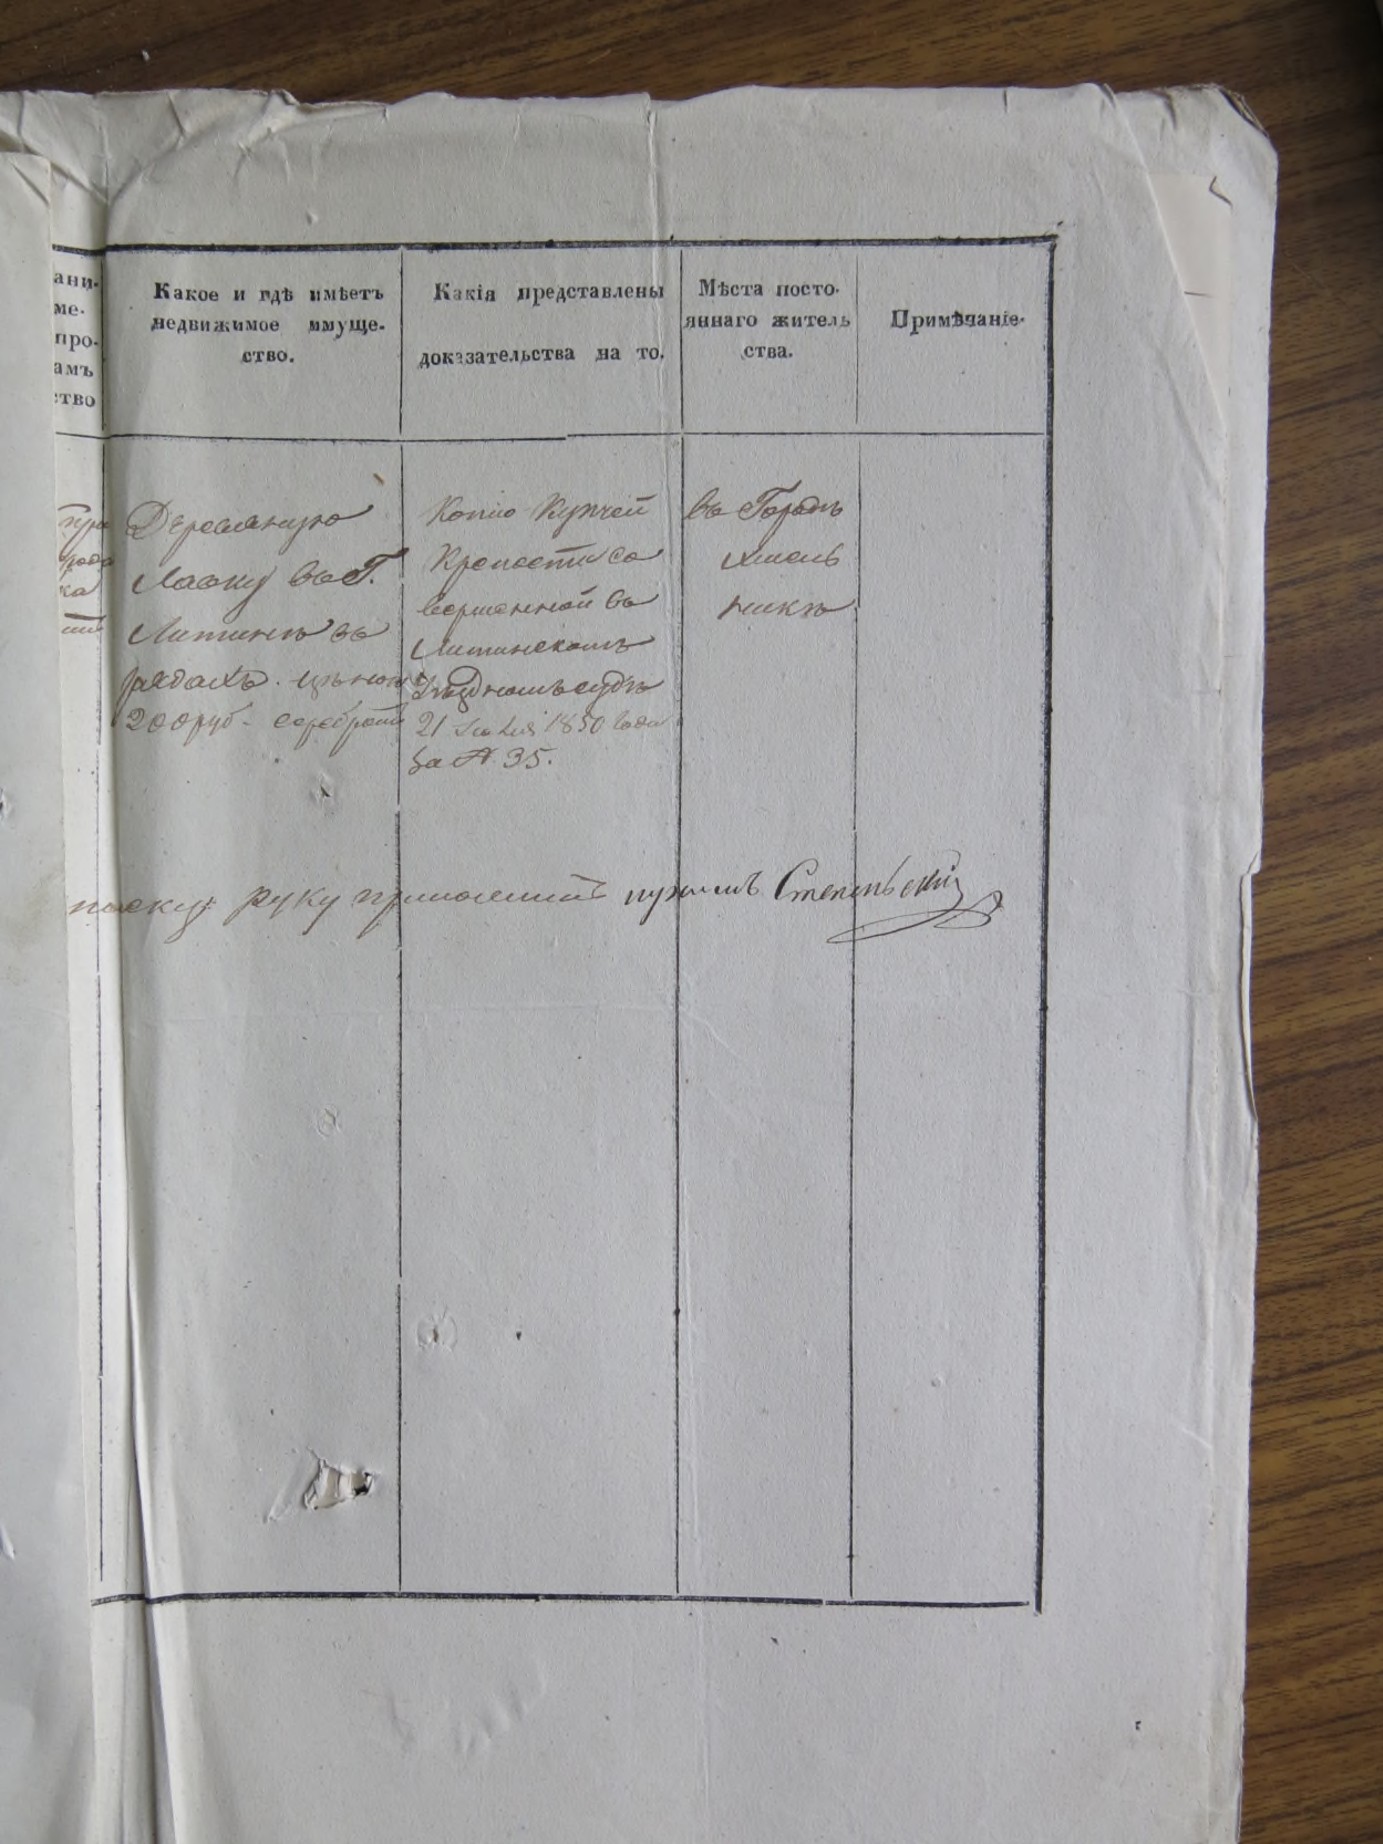 ани-
ме-
про-
амъ
ство
Какое и гдѣ имѣетъ
недвижимое имуще-
ство.
Какія представлены
доказательства на то.
Мѣста посто-
яннаго житель
ства.
Примѣчаніе.
Деревянную
Лавку въ Г.
Литинѣ въ
рядахъ. цѣною
200 руб. серебромъ
Копію Купчей
Крепости со
вершенной въ
Литинскомъ
Уѣздномъ судѣ
21 1850 года
за № 35.
въ Городѣ
Хмель
никѣ
руку приложилъ